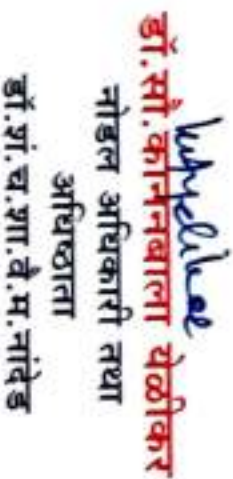 डॉ.सौ.काननबाला येळीकर
नोडल अधिकारी तथा
अधिष्ठाता
डॉ.शं.च.शा.वै.म.नांदेड